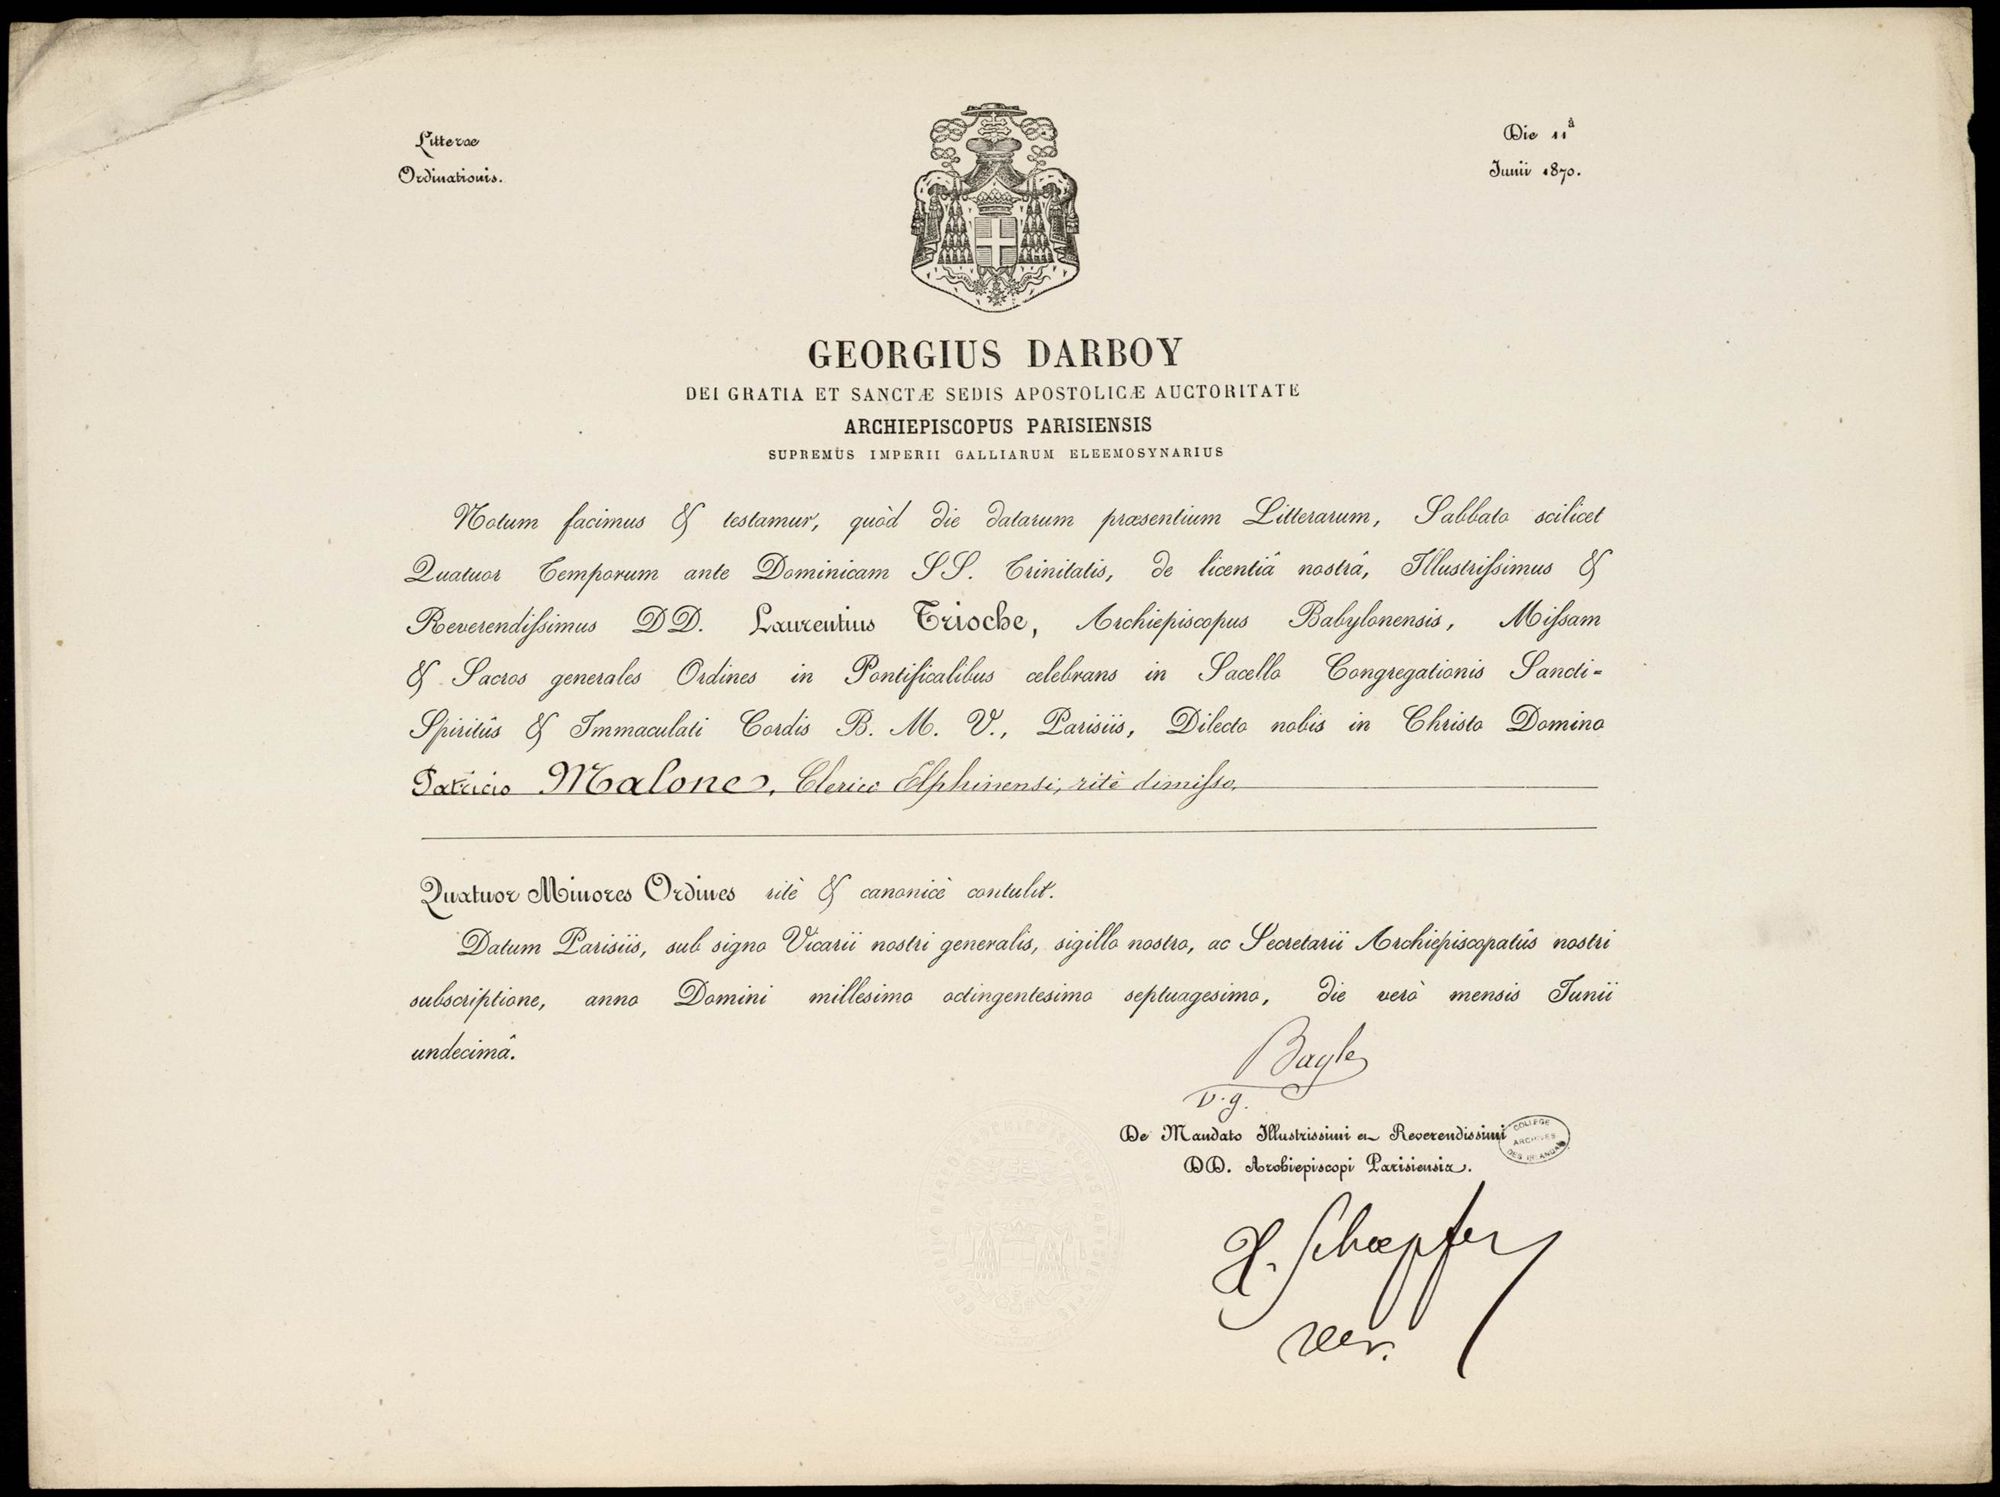 Litterae
Ordinationis.
Die 11ª
Junii 1870.
GEORGIUS DARBOY
DEI GRATIA ET SANCTÆ SEDIS APOSTOLICÆ AUCTORITATE
ARCHIEPISCOPUS PARISIENSIS
SUPREMUS IMPERII GALLIARUM ELEEMOSYNARIUS
Notum facimus & testamur, quòd die datarum præsentium Litterarum, Sabbato scilicet
Quatuor Temporum ante Dominicam SS. Trinitatis, de licentiâ nostrâ, Illustrissimus &
Reverendissimus DD. Laurentius Trioche, Archiepiscopus Babylonensis, Missam
& Sacros generales Ordines in Pontificalibus celebrans in Sacello Congregationis Sancti-
Spiritûs & Immaculati Cordis B. M. V., Parisiis, Dilecto nobis in Christo Domino
Patricio Malone, Clerico Elphinensi, ritè dimisso.
Quatuor Minores Ordines ritè & canonicè contulit.
Datum Parisiis, sub signo Vicarii nostri generalis, sigillo nostro, ac Secretarii Archiepiscopatûs nostri
subscriptione, anno Domini millesimo octingentesimo septuagesimo, die verò mensis Junii
undecimâ.
Bayle
v.g.
De Mandato Illustrissimi et Reverendissimi
DD. Archiepiscopi Parisiensis.
COLLEGE
ARCHIVES
DES IRLANDAIS
H. Schoepfer